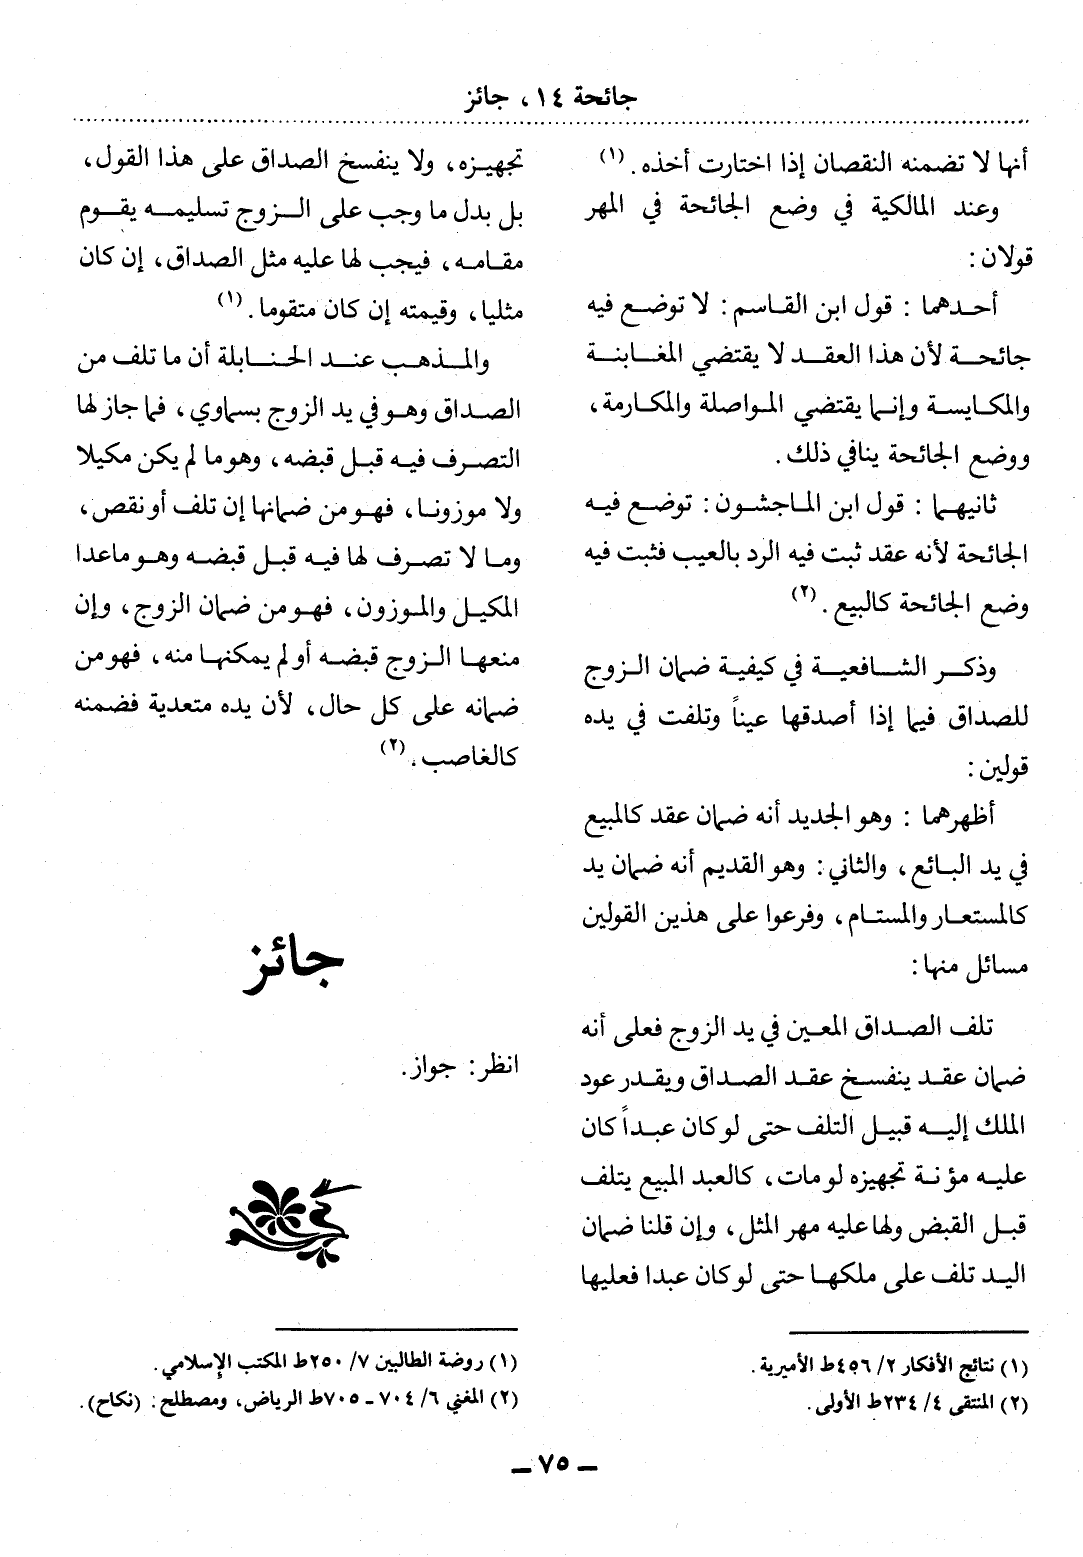 جائحة ١٤ ، جائز
أنها لا تضمنه النقصان إذا اختارت أخذه . (١)
وعند المالكية في وضع الجائحة في المهر
قولان :
أحدهما : قول ابن القاسم : لا توضع فيه
جائحة لأن هذا العقد لا يقتضي المغابنة
والمكايسة وإنما يقتضي المواصلة والمكارمة ،
ووضع الجائحة ينافي ذلك .
ثانيهما : قول ابن الماجشون : توضع فيه
الجائحة لأنه عقد ثبت فيه الرد بالعيب فثبت فيه
وضع الجائحة كالبيع . (٢)
وذكر الشافعية في كيفية ضمان الزوج
للصداق فيما إذا أصدقها عيناً وتلفت في يده
قولين :
أظهرهما : وهو الجديد أنه ضمان عقد كالمبيع
في يد البائع ، والثاني : وهو القديم أنه ضمان يد
كالمستعار والمستام ، وفرعوا على هذين القولين
مسائل منها :
تلف الصداق المعين في يد الزوج فعلى أنه
ضمان عقد ينفسخ عقد الصداق ويقدر عود
الملك إليه قبيل التلف حتى لو كان عبداً كان
عليه مؤنة تجهيزه لو مات ، كالعبد المبيع يتلف
قبل القبض ولها عليه مهر المثل ، وإن قلنا ضمان
اليد تلف على ملكها حتى لو كان عبدا فعليها
(١) نتائج الأفكار ٢/ ٤٥٦ ط الأميرية .
(٢) المنتقى ٤/ ٢٣٤ ط الأولى .
تجهيزه ، ولا ينفسخ الصداق على هذا القول ،
بل بدل ما وجب على الزوج تسليمه يقوم
مقامه ، فيجب لها عليه مثل الصداق ، إن كان
مثليا ، وقيمته إن كان متقوما . (١)
والمذهب عند الحنابلة أن ما تلف من
الصداق وهو في يد الزوج بسماوي ، فما جاز لها
التصرف فيه قبل قبضه ، وهو ما لم يكن مكيلا
ولا موزونا ، فهو من ضمانها إن تلف أو نقص ،
وما لا تصرف لها فيه قبل قبضه وهو ماعدا
المكيل والموزون ، فهو من ضمان الزوج ، وإن
منعها الزوج قبضه أو لم يمكنها منه ، فهو من
ضمانه على كل حال ، لأن يده متعدية فضمنه
كالغاصب . (٢)
جائز
انظر : جواز .
(١) روضة الطالبين ٧/ ٢٥٠ ط المكتب الإسلامي .
(٢) المغني ٦/ ٧٠٤ ـ ٧٠٥ ط الرياض ، ومصطلح : (نكاح) .
ـ ٧٥ ـ